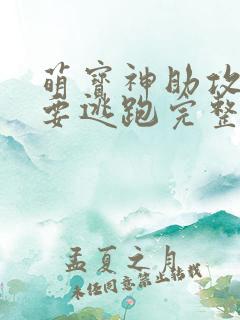 萌宝神助攻
要逃跑完整
孟夏之月
未经同意禁止转载